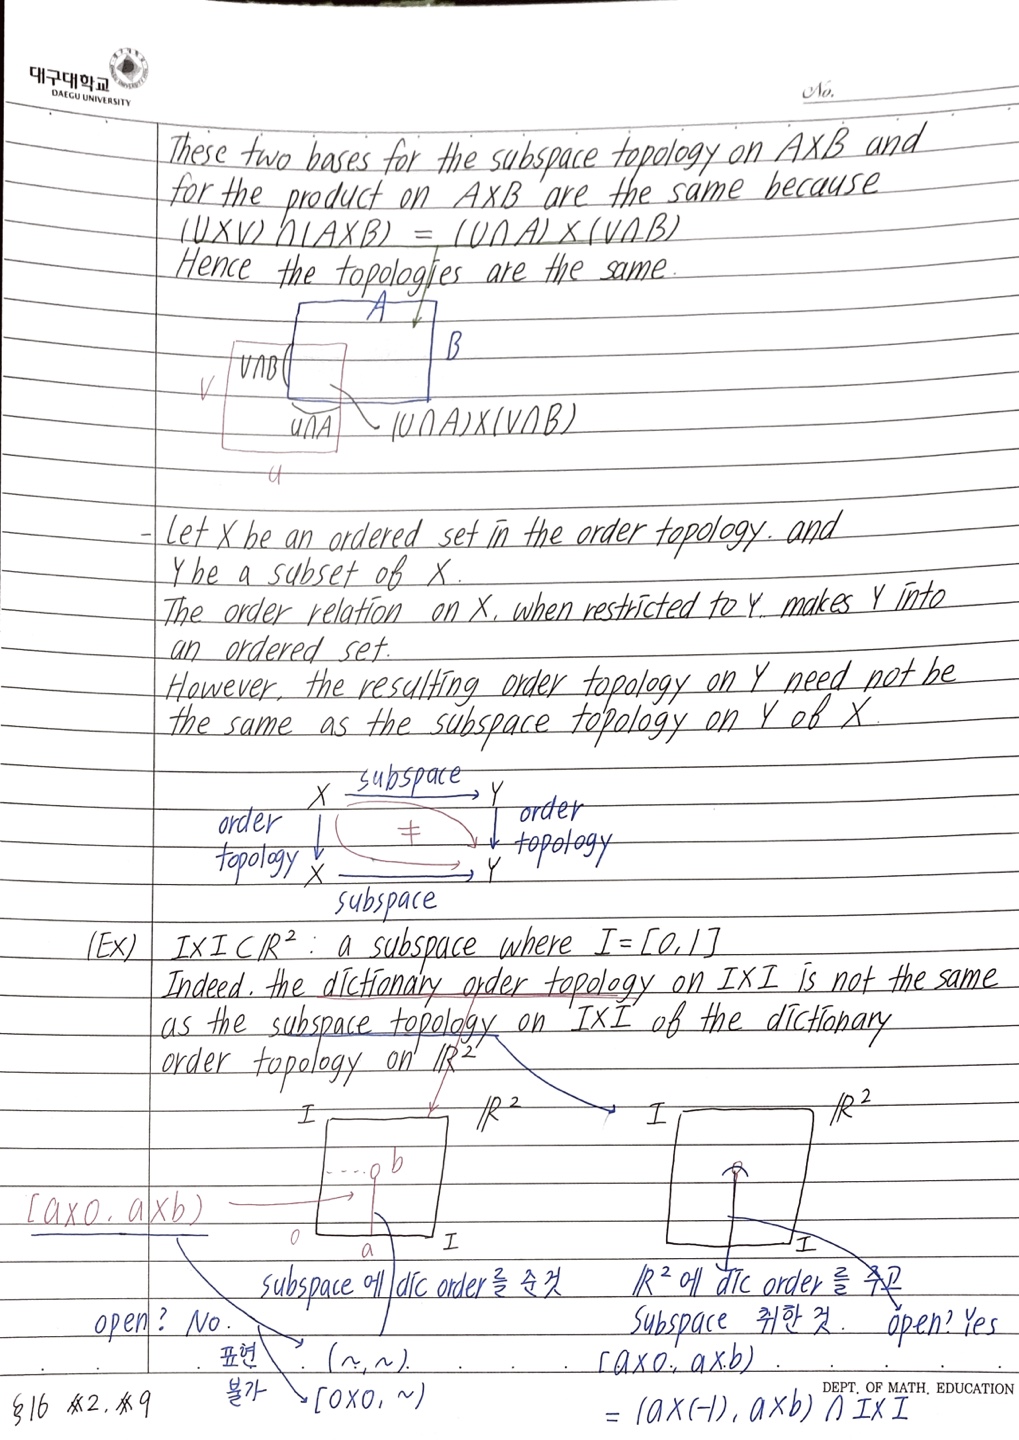 대구대학교
DAEGU UNIVERSITY
No.
These two bases for the subspace topology on A×B and
for the product on A×B are the same because
(U×V)∩(A×B) = (U∩A)×(V∩B)
Hence the topologies are the same.
A
B
V∩B
V
U∩A
(U∩A)×(V∩B)
U
- Let X be an ordered set in the order topology. and
Y be a subset of X.
The order relation on X, when restricted to Y, makes Y into
an ordered set.
However, the resulting order topology on Y need not be
the same as the subspace topology on Y of X.
X subspace Y
order topology
≠
order topology
X Y
subspace
(Ex) I×I⊂ℝ² : a subspace where I=[0,1]
Indeed. the dictionary order topology on I×I is not the same
as the subspace topology on I×I of the dictionary
order topology on ℝ²
I ℝ² I ℝ²
b
[a×0, a×b)
0 a I I
subspace에 dic order를 준것
ℝ²에 dic order를 주고
open? No.
subspace 취한 것. open? Yes
표현 (~,~)
[a×0, a×b)
불가 [0×0, ~)
DEPT. OF MATH. EDUCATION
§16 #2, #9
= (a×(-1), a×b) ∩ I×I